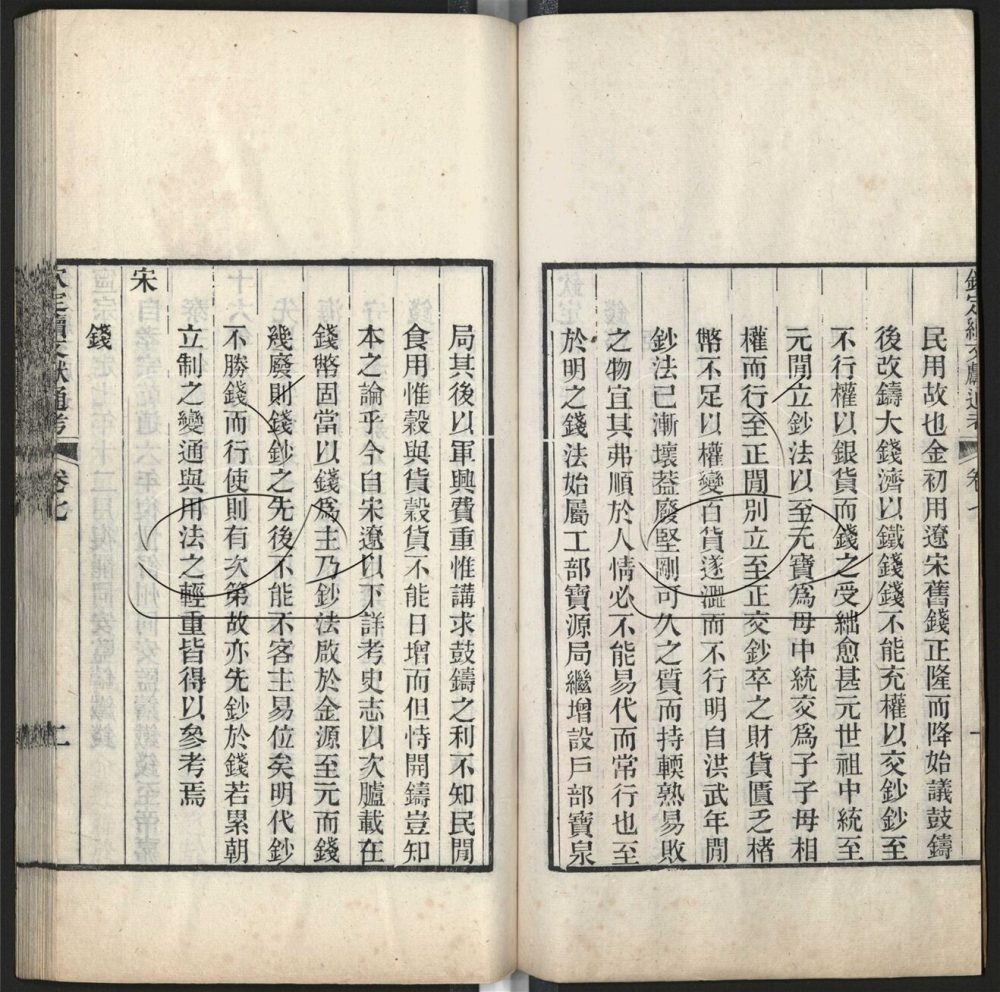 欽定續文獻通考
卷七
民用故也金初用遼宋舊錢正隆而降始議鼓鑄
後改鑄大錢濟以鐵錢錢不能充權以交鈔鈔至
不行權以銀貨而錢之受絀愈甚元世祖中統至
元閒立鈔法以至元寶爲母中統交爲子子母相
權而行至正閒別立至正交鈔卒之財貨匱乏楮
幣不足以權變百貨遂澀而不行明自洪武年閒
鈔法已漸壞葢廢堅剛可久之質而持輭熟易敗
之物宜其弗順於人情必不能易代而常行也至
於明之錢法始屬工部寶源局繼增設戶部寶泉
局其後以軍興費重惟講求鼓鑄之利不知民閒
食用惟穀與貨穀貨不能日增而但恃開鑄豈知
本之論乎今自宋遼以下詳考史志以次臚載在
錢幣固當以錢爲主乃鈔法啟於金源至元而錢
幾廢則錢鈔之先後不能不客主易位矣明代鈔
不勝錢而行使則有次第故亦先鈔於錢若累朝
立制之變通與用法之輕重皆得以參考焉
宋
錢
欽定續文獻通考
卷七
二